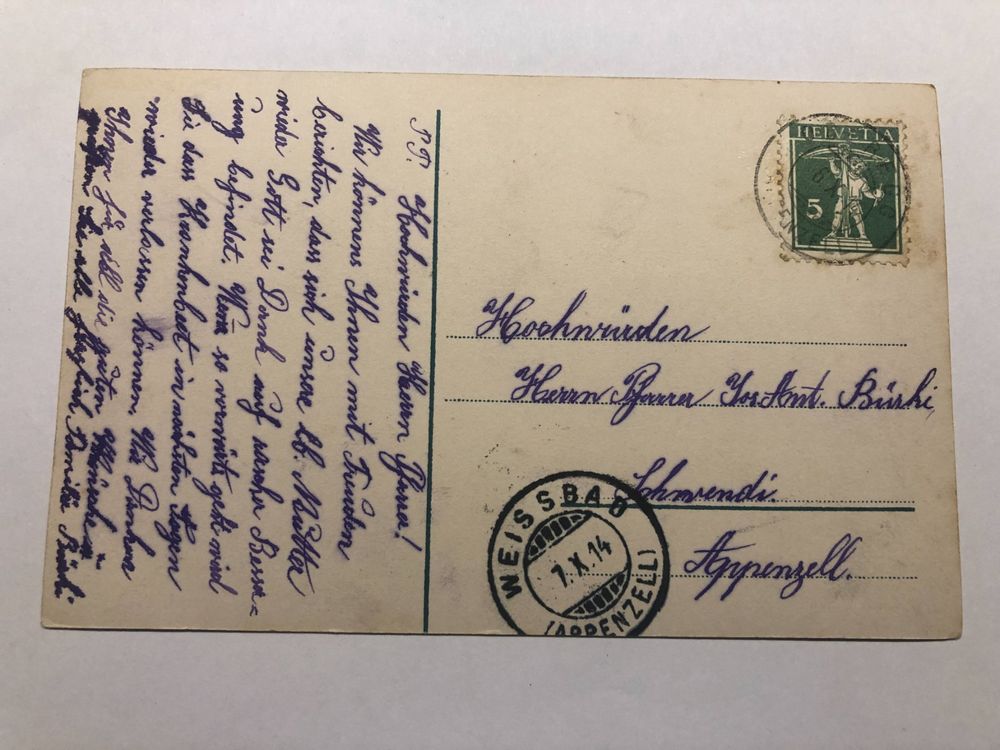 P.P. Hochwürden Herrn Pfarrer!
Wir können Ihnen mit Freuden
berichten, dass sich unsere lb. Mutter
wieder Gott sei Dank auf rascher Besser-
ung befindet. Wenn so vorwärts geht wird
Sie das Krankenbett in nächsten Tagen
wieder verlassen können. Wir Danken
Ihnen für all die guten Wünsche u.
grüssen Sie alle Familie Bürki
HELVETIA
5
Hochwürden
Herrn Pfarrer Jos. Ant. Bürki
Schwendi.
Appenzell.
WEISSBAD
7.X.14
(APPENZELL)